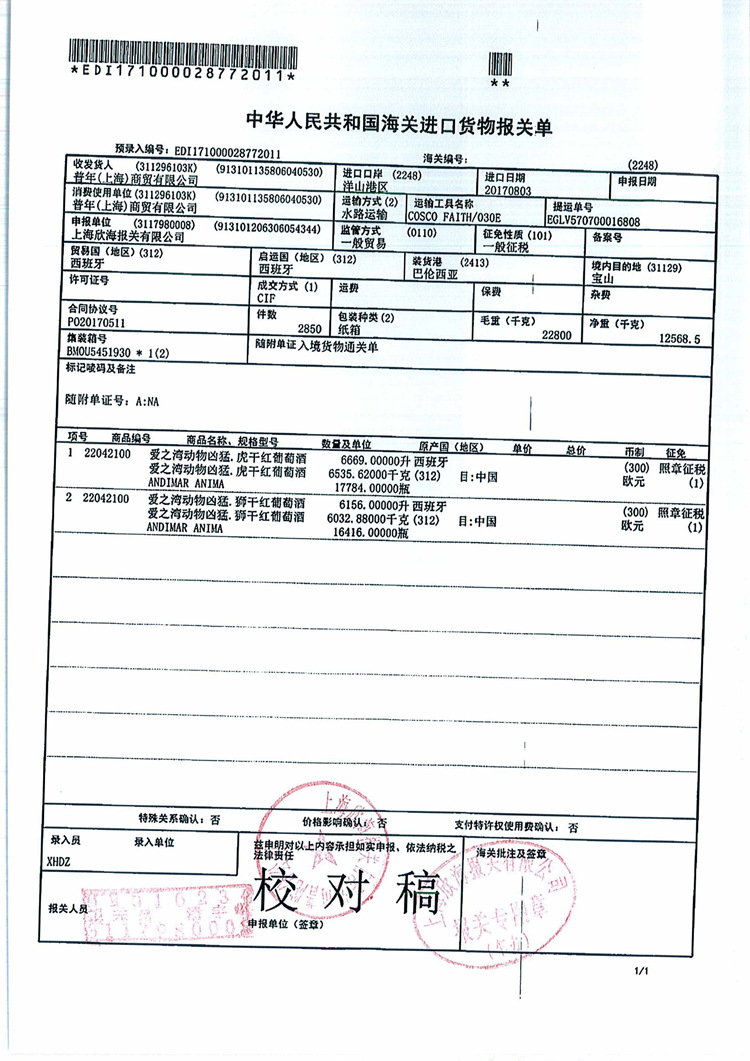 *EDI171000028772011*
**
中华人民共和国海关进口货物报关单
预录入编号: EDI171000028772011 海关编号: (2248)
收发货人 (311296103K) (913101135806040530) 进口口岸 (2248) 进口日期 申报日期
普年(上海)商贸有限公司 洋山港区 20170803
消费使用单位(311296103K) (913101135806040530) 运输方式(2) 运输工具名称 提运单号
普年(上海)商贸有限公司 水路运输 COSCO FAITH/030E EGLV570700016808
申报单位 (3117980008) (913101206306054344) 监管方式 (0110) 征免性质(101) 备案号
上海欣海报关有限公司 一般贸易 一般征税
贸易国(地区)(312) 启运国(地区)(312) 装货港 (2413) 境内目的地(31129)
西班牙 西班牙 巴伦西亚 宝山
许可证号 成交方式(1) 运费 保费 杂费
CIF
合同协议号 件数 包装种类(2) 毛重(千克) 净重(千克)
PO20170511 2850 纸箱 22800 12568.5
集装箱号 随附单证入境货物通关单
BMOU5451930 * 1(2)
标记唛码及备注
随附单证号: A:NA
项号 商品编号 商品名称、规格型号 数量及单位 原产国(地区) 单价 总价 币制 征免
1 22042100 爱之湾动物凶猛.虎干红葡萄酒 6669.00000升 西班牙 (300) 照章征税
爱之湾动物凶猛.虎干红葡萄酒 6535.62000千克 (312) 目:中国 欧元 (1)
ANDIMAR ANIMA 17784.00000瓶
2 22042100 爱之湾动物凶猛.狮干红葡萄酒 6156.00000升 西班牙 (300) 照章征税
爱之湾动物凶猛.狮干红葡萄酒 6032.88000千克 (312) 目:中国 欧元 (1)
ANDIMAR ANIMA 16416.00000瓶
特殊关系确认: 否 价格影响确认: 否 支付特许权使用费确认: 否
录入员 录入单位 兹申明对以上内容承担如实申报、依法纳税之 海关批注及签章
法律责任
XHDZ
校对稿
报关人员 申报单位(签章)
报关专用章
1/1